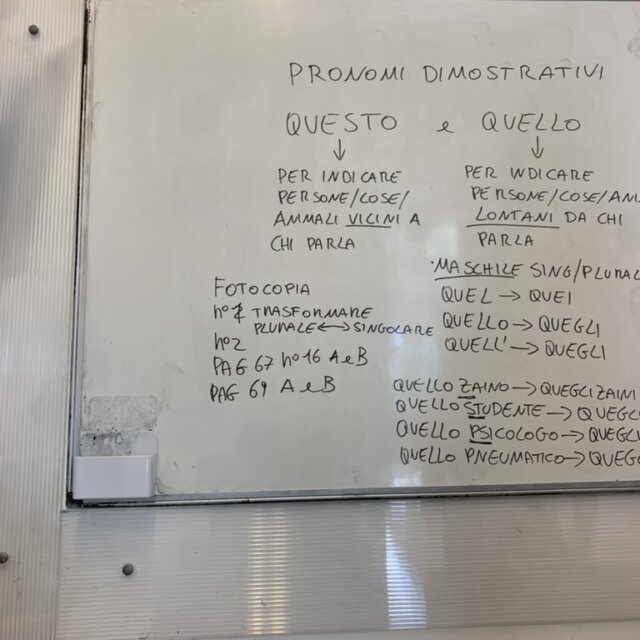 PRONOMI DIMOSTRATIVI
QUESTO e QUELLO
↓ ↓
PER INDICARE
PERSONE/COSE/
ANIMALI VICINI A
CHI PARLA
PER INDICARE
PERSONE/COSE/ANI
LONTANI DA CHI
PARLA
·MASCHILE SING/PLURAL
QUEL → QUEI
QUELLO → QUEGLI
QUELL' → QUEGLI
FOTOCOPIA
n°1 TRASFORMARE
PLURALE ↔ SINGOLARE
n°2
PAG 67 n°16 A e B
PAG 69 A e B
QUELLO ZAINO → QUEGLI ZAINI
QUELLO STUDENTE → QUEGL
QUELLO PSICOLOGO → QUEGLI
QUELLO PNEUMATICO → QUEG